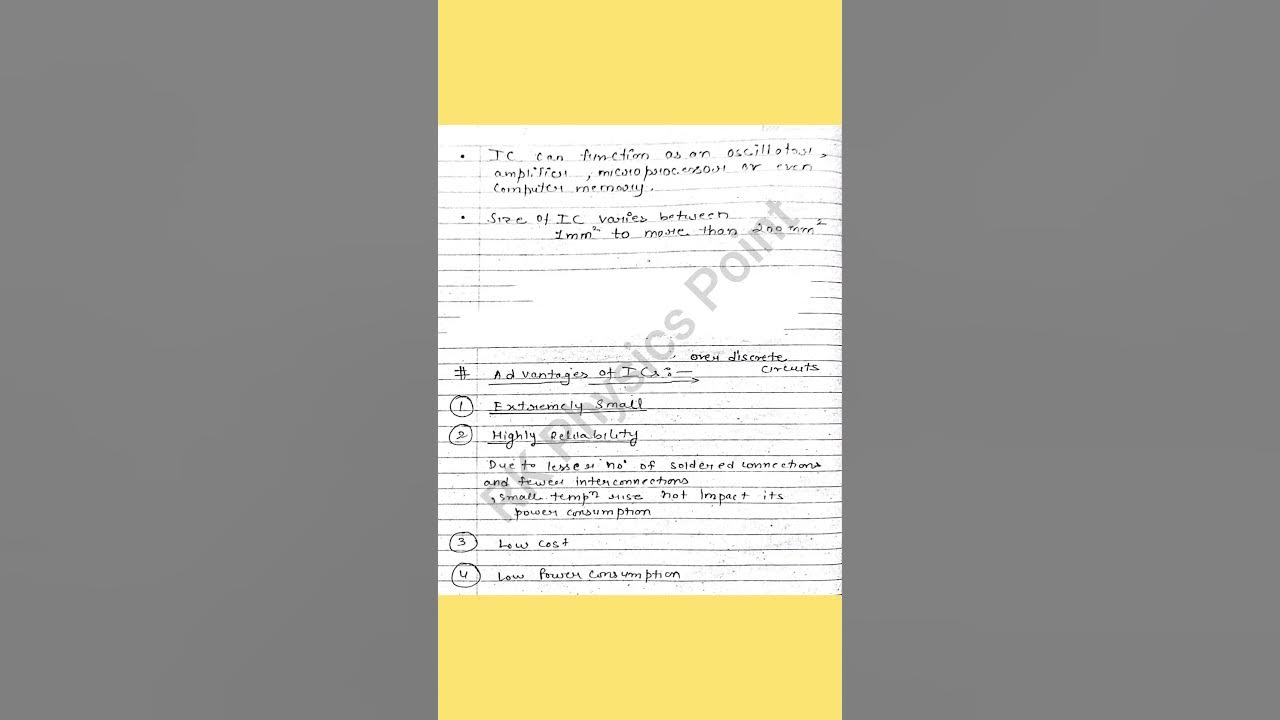 • IC can function as an oscillator,
amplifier, microprocessor or even
computer memory.
• Size of IC varies between
1mm² to more than 200 mm²
over discrete
# Advantages of ICs:— circuits
① Extremely Small
② Highly Reliability
Due to lesser no. of soldered connections
and fewer interconnections
, small tempr rise not impact its
power consumption
③ Low cost
④ Low Power consumption
RK Physics Point